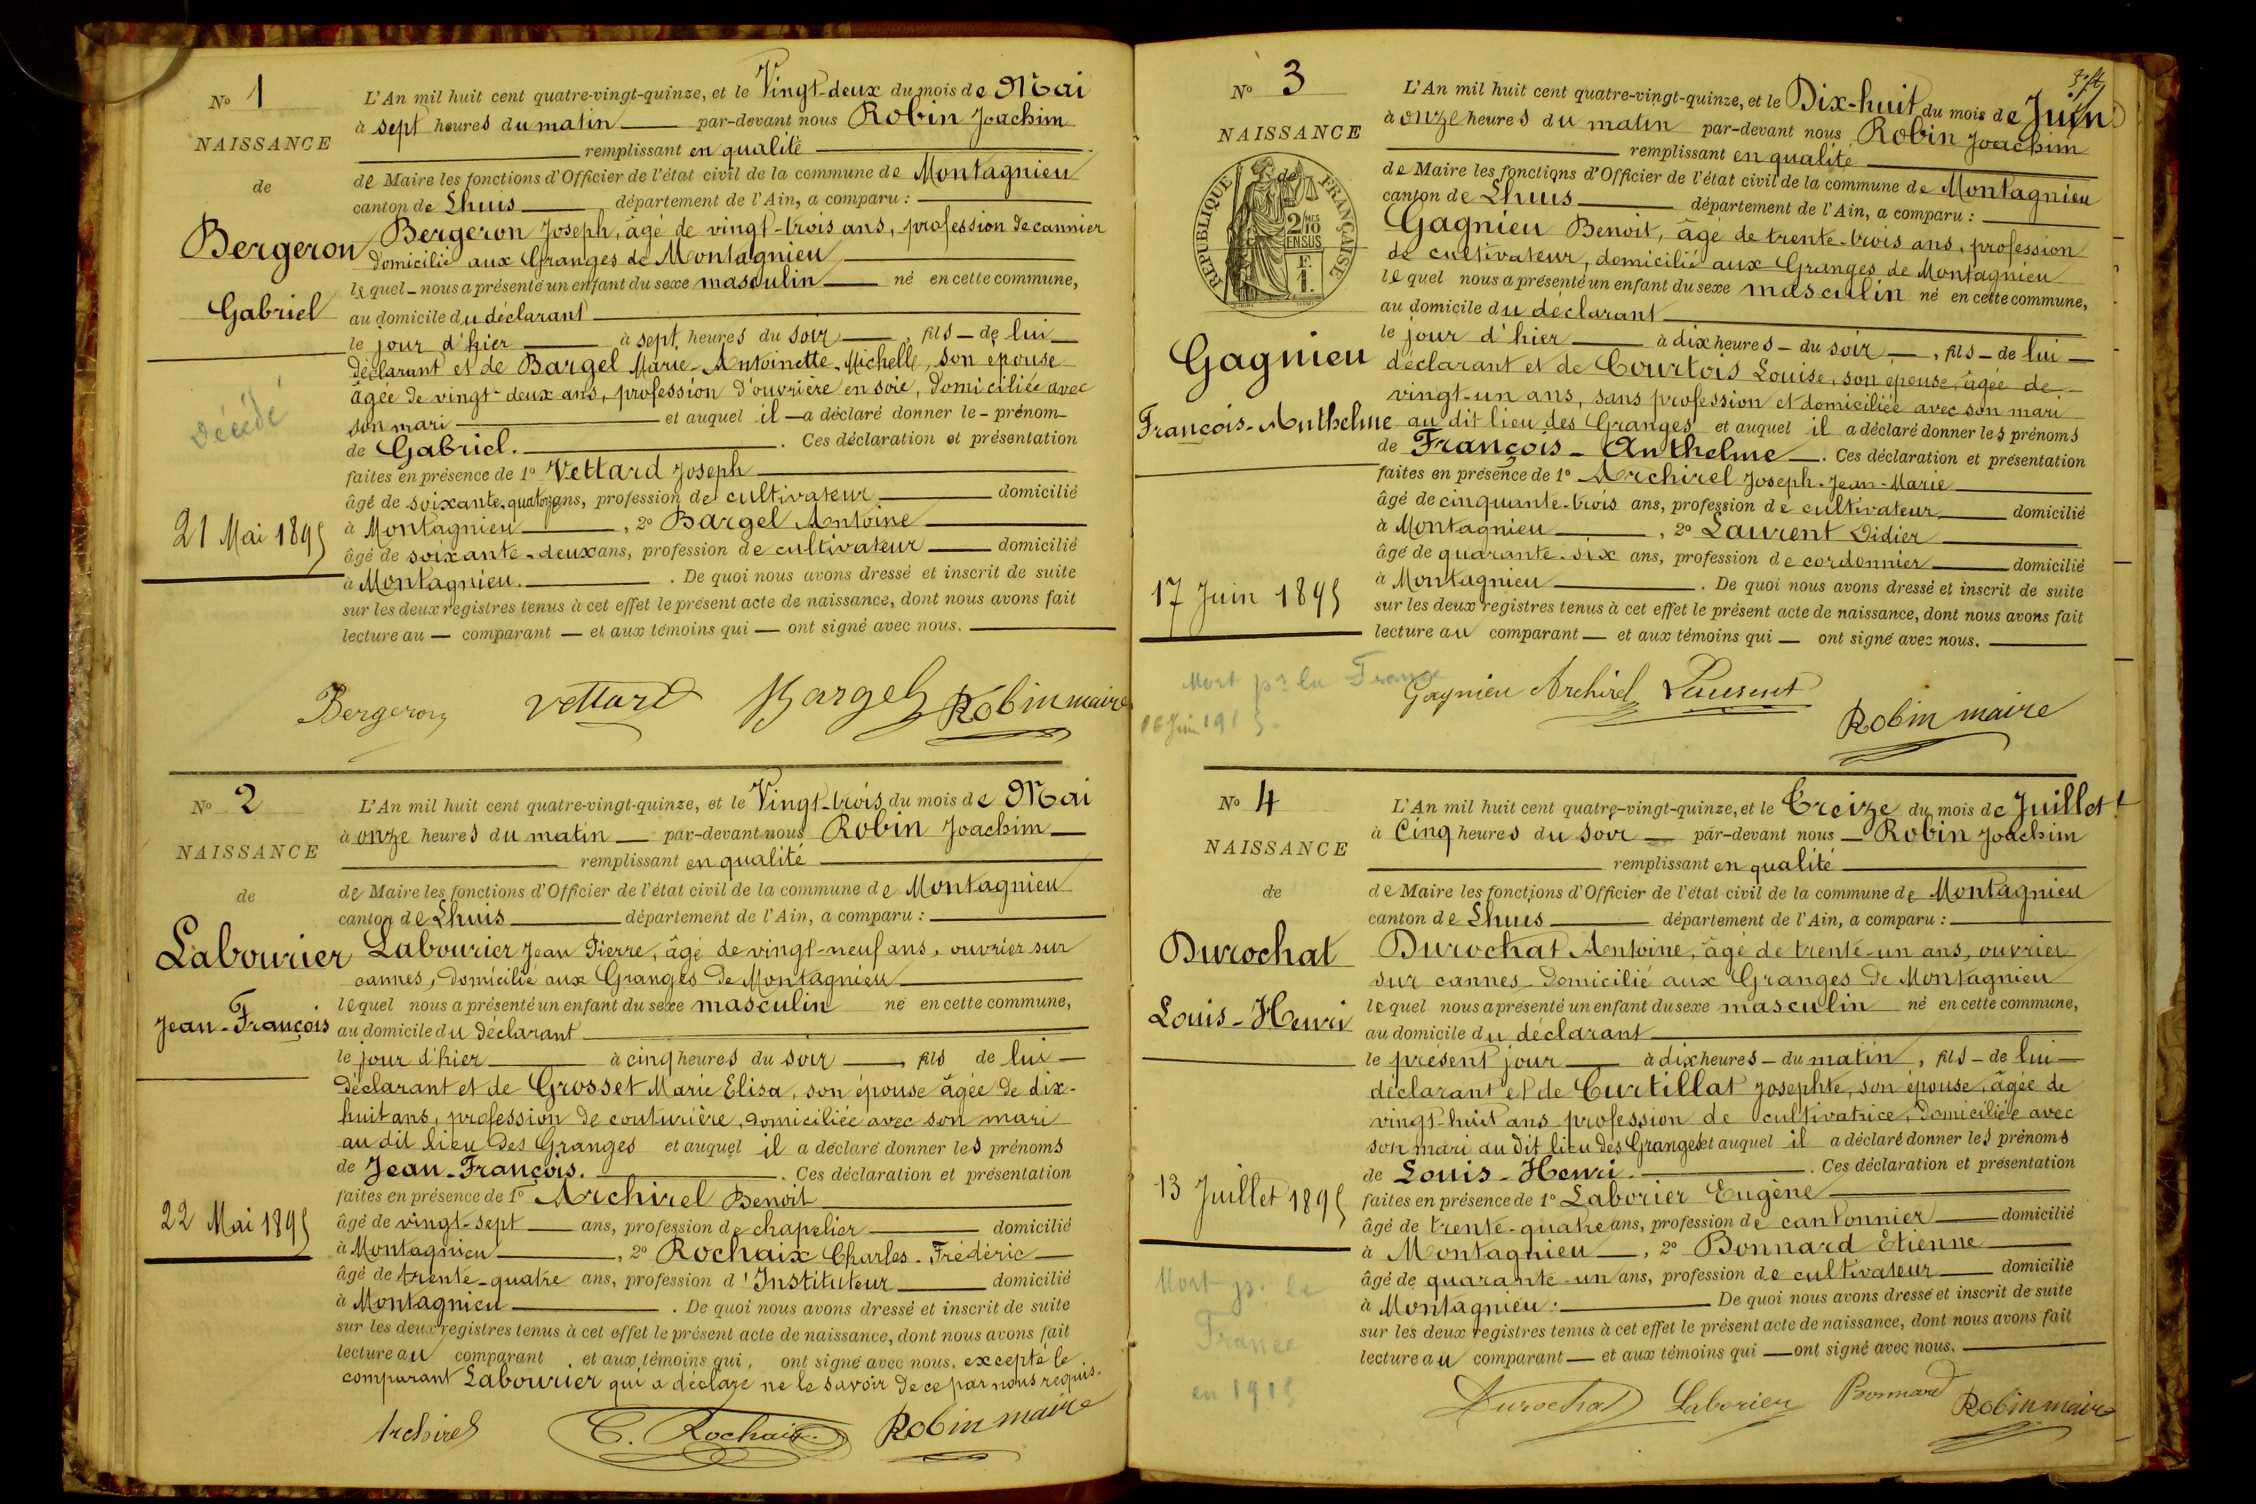 No 1
NAISSANCE
de
Bergeron
Gabriel
Décédé
21 Mai 1895
L'An mil huit cent quatre-vingt-quinze, et le Vingt-deux du mois de Mai
à sept heures du matin par-devant nous Robin Joachim
remplissant en qualité
de Maire les fonctions d'Officier de l'état civil de la commune de Montagnieu
canton de Lhuis département de l'Ain, a comparu :
Bergeron Joseph, âgé de vingt-trois ans, profession de cannier
domicilié aux Granges de Montagnieu
lequel nous a présenté un enfant du sexe masculin né en cette commune,
au domicile du déclarant
le jour d'hier à sept heures du soir, fils de lui
déclarant et de Bargel Marie-Antoinette-Michelle, son épouse
âgée de vingt-deux ans, profession d'ouvrière en soie, domiciliée avec
son mari et auquel il a déclaré donner le prénom
de Gabriel. . Ces déclaration et présentation
faites en présence de 1o Vettard Joseph
âgé de soixante-quatorze ans, profession de cultivateur domicilié
à Montagnieu, 2o Bargel Antoine
âgé de soixante-deux ans, profession de cultivateur domicilié
à Montagnieu. . De quoi nous avons dressé et inscrit de suite
sur les deux registres tenus à cet effet le présent acte de naissance, dont nous avons fait
lecture au comparant et aux témoins qui ont signé avec nous.
Bergeron Vettard Bargel Robin maire
No 2
NAISSANCE
de
Labourier
Jean-François
22 Mai 1895
L'An mil huit cent quatre-vingt-quinze, et le Vingt-trois du mois de Mai
à onze heures du matin par-devant nous Robin Joachim
remplissant en qualité
de Maire les fonctions d'Officier de l'état civil de la commune de Montagnieu
canton de Lhuis département de l'Ain, a comparu :
Labourier Jean Pierre, âgé de vingt-neuf ans, ouvrier sur
cannes, domicilié aux Granges de Montagnieu
lequel nous a présenté un enfant du sexe masculin né en cette commune,
au domicile du déclarant
le jour d'hier à cinq heures du soir, fils de lui
déclarant et de Grosset Marie Elisa, son épouse âgée de dix-
huit ans, profession de couturière, domiciliée avec son mari
au dit lieu des Granges et auquel il a déclaré donner les prénoms
de Jean-François. . Ces déclaration et présentation
faites en présence de 1o Archirel Benoit
âgé de vingt-sept ans, profession de chapelier domicilié
à Montagnieu, 2o Rochaix Charles-Frédéric
âgé de trente-quatre ans, profession d'Instituteur domicilié
à Montagnieu . De quoi nous avons dressé et inscrit de suite
sur les deux registres tenus à cet effet le présent acte de naissance, dont nous avons fait
lecture au comparant et aux témoins qui, ont signé avec nous, excepté le
comparant Labourier qui a déclaré ne le savoir de ce par nous requis.
Archirel C. Rochaix Robin maire
No 3
NAISSANCE
de
RÉPUBLIQUE FRANÇAISE
2/10 MES
EN SUS
F.
1.
Gagnieu
François-Anthelme
17 Juin 1895
Mort pr la France
16 Juin 1915
L'An mil huit cent quatre-vingt-quinze, et le Dix-huit du mois de Juin
à onze heures du matin par-devant nous Robin Joachim
remplissant en qualité
de Maire les fonctions d'Officier de l'état civil de la commune de Montagnieu
canton de Lhuis département de l'Ain, a comparu :
Gagnieu Benoit, âgé de trente-trois ans, profession
de cultivateur, domicilié aux Granges de Montagnieu
lequel nous a présenté un enfant du sexe masculin né en cette commune,
au domicile du déclarant
le jour d'hier à dix heures du soir, fils de lui
déclarant et de Courtois Louise, son épouse, âgée de
vingt-un ans, sans profession et domiciliée avec son mari
au dit lieu des Granges et auquel il a déclaré donner les prénoms
de François-Anthelme. Ces déclaration et présentation
faites en présence de 1o Archirel Joseph-Jean-Marie
âgé de cinquante-trois ans, profession de cultivateur domicilié
à Montagnieu, 2o Laurent Didier
âgé de quarante-six ans, profession de cordonnier domicilié
à Montagnieu . De quoi nous avons dressé et inscrit de suite
sur les deux registres tenus à cet effet le présent acte de naissance, dont nous avons fait
lecture au comparant et aux témoins qui ont signé avec nous.
Gagnieu Archirel Laurent
Robin maire
No 4
NAISSANCE
de
Durochat
Louis-Henri
13 Juillet 1895
Mort pr. la
France
en 1915
L'An mil huit cent quatre-vingt-quinze, et le Treize du mois de Juillet
à Cinq heures du soir par-devant nous Robin Joachim
remplissant en qualité
de Maire les fonctions d'Officier de l'état civil de la commune de Montagnieu
canton de Lhuis département de l'Ain, a comparu :
Durochat Antoine, âgé de trente-un ans, ouvrier
sur cannes domicilié aux Granges de Montagnieu
lequel nous a présenté un enfant du sexe masculin né en cette commune,
au domicile du déclarant
le présent jour à dix heures du matin, fils de lui
déclarant et de Curtillat Josephte, son épouse, âgée de
vingt-huit ans profession de cultivatrice, domiciliée avec
son mari au dit lieu des Granges et auquel il a déclaré donner les prénoms
de Louis-Henri. . Ces déclaration et présentation
faites en présence de 1o Laborier Eugène
âgé de trente-quatre ans, profession de cantonnier domicilié
à Montagnieu, 2o Bonnard Etienne
âgé de quarante-un ans, profession de cultivateur domicilié
à Montagnieu. De quoi nous avons dressé et inscrit de suite
sur les deux registres tenus à cet effet le présent acte de naissance, dont nous avons fait
lecture au comparant et aux témoins qui ont signé avec nous.
Durochat Laborier Bonnard Robin maire